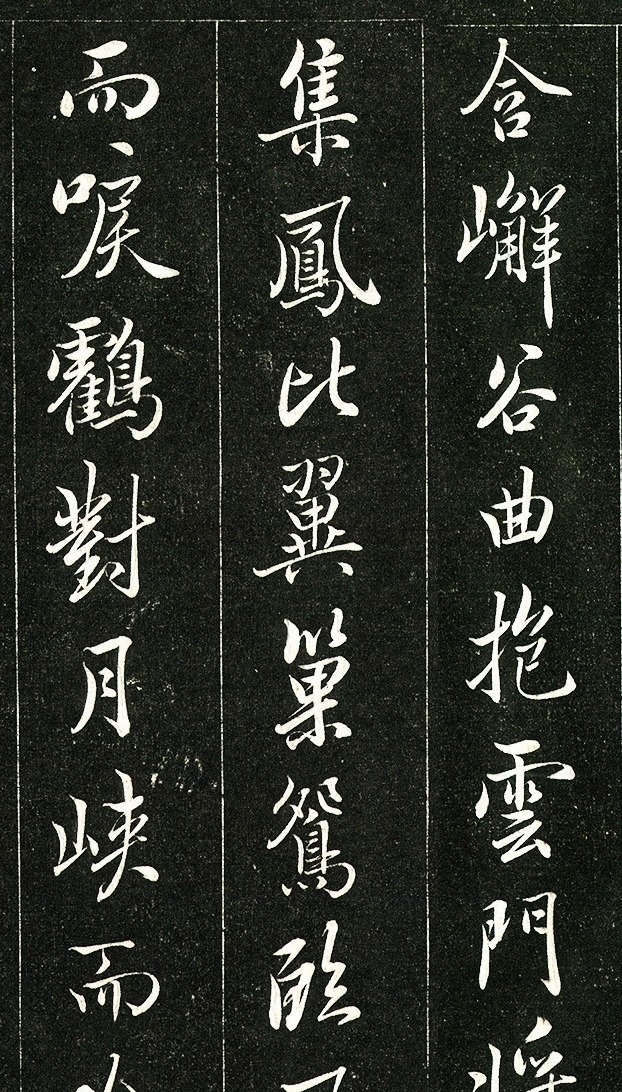 含嶰谷曲抱雲門將
集鳳比翼巢鴛臨
而唳鸖對月峽而